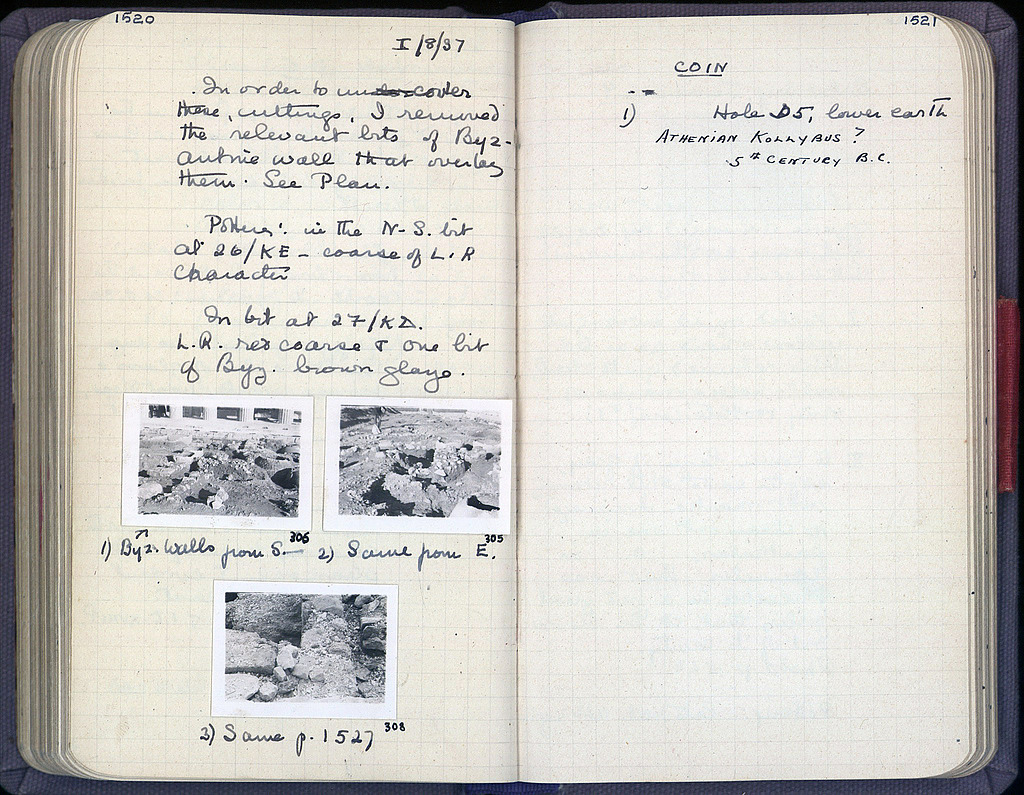 1520
I/8/37
In order to uncover
these, cuttings, I removed
the relevant bits of Byz-
antine wall that overlay
them. See Plan.
Pottery: in the N-S. bit
at 26/KE - coarse of L.R
character
In bit at 27/KΔ.
L.R. red coarse & one bit
of Byz. brown glaze.
1) Byz. Walls from S. 306
2) Same from E. 305
3) Same p. 1527 308
1521
COIN
1) Hole D5, lower earth
ATHENIAN KOLLYBUS?
5th CENTURY B.C.